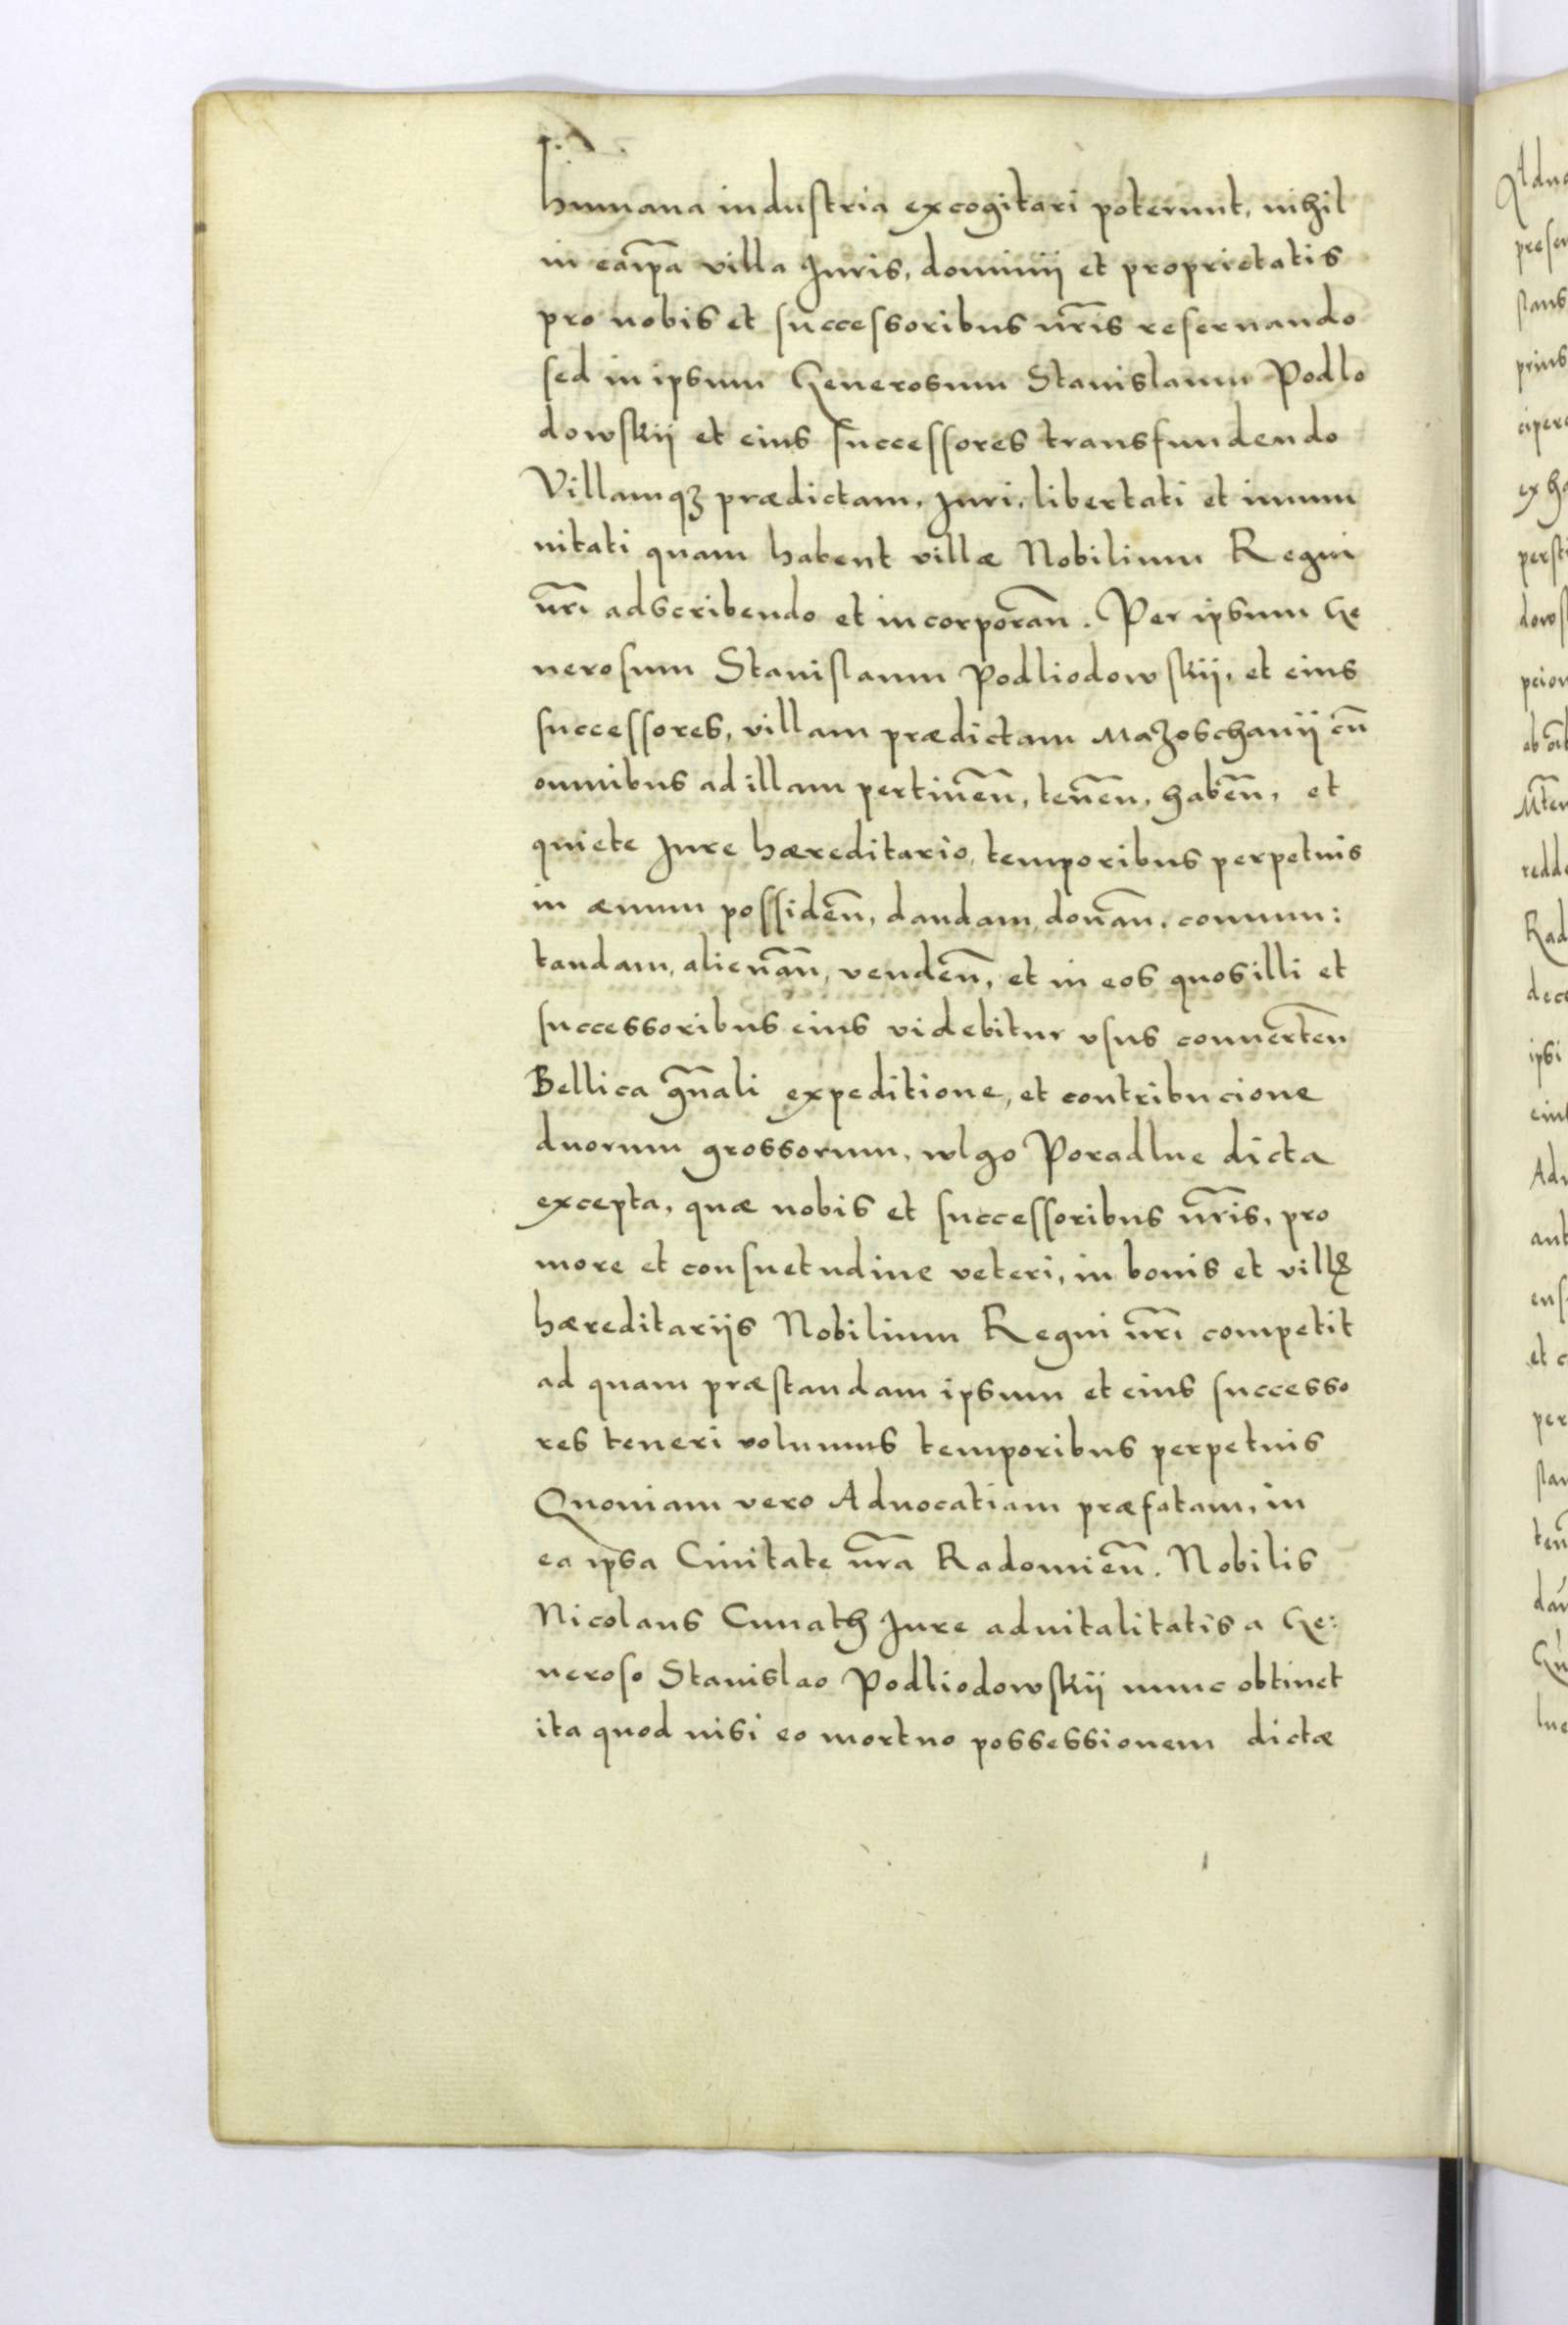 humana industria excogitari poterunt, nihil
in eaip̄a villa Juris, dominij et proprietatis
pro nobis et successoribus nr̄is reseruando
sed in ipsum Generosum Stanislaum Podlo
dowskij et eius successores transfundendo
Villamqꝫ prædictam, Juri, libertati et immu
nitati quam habent villæ Nobilium Regni
nr̄i adscribendo et incorporan̄. Per ipsum Ge
nerosum Stanislaum Podliodowskij, et eius
successores, villam prædictam Mazoschanij cū
omnibus ad illam pertinen̄, tenen̄, haben̄, et
quiete Jure hæreditario, temporibus perpetuis
in æuum possiden̄, dandam, donan̄, commu:
tandam, alienan̄, venden̄, et in eos quos illi et
successoribus eius videbitur vsus conuerten̄
Bellica gn̄ali expeditione, et contribucione
duorum grossorum, wlgo Poradlne dicta
excepta, quæ nobis et successoribus nr̄is, pro
more et consuetudine veteri, in bonis et villꝭ
hæreditarijs Nobilium Regni nr̄i competit
ad quam præstandam ipsum et eius successo
res teneri volumus temporibus perpetuis
Quoniam vero Aduocatiam præfatam, in
ea ipsa Ciuitate nr̄a Radomien̄. Nobilis
Nicolaus Cunath Jure aduitalitatis a Ge:
neroso Stanislao Podliodowskij nunc obtinet
ita quod nisi eo mortuo possessionem dictæ